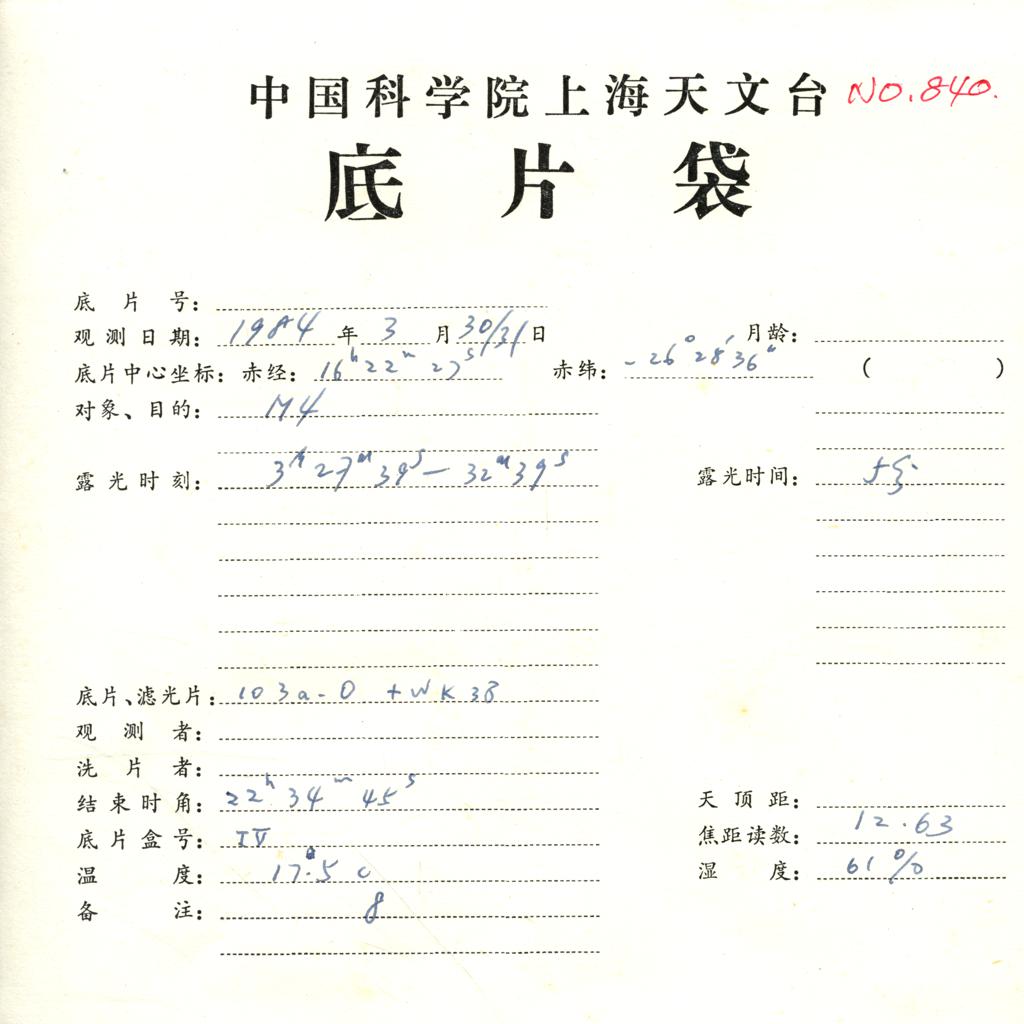 中国科学院上海天文台 NO.840.
底片袋
底片号：
观测日期：1984年3月30/31日 月龄：
底片中心坐标：赤经：16ʰ22ᵐ27ˢ 赤纬：-26°28′36″ ( )
对象、目的：M4
露光时刻：3ʰ27ᵐ39ˢ-32ᵐ39ˢ 露光时间：5分
底片、滤光片：103a-O +WK3B
观测者：
洗片者：
结束时角：22ʰ34ᵐ45ˢ 天顶距：
底片盒号：IV 焦距读数：12.63
温度：17°.5 C 湿度：61%
备注：8